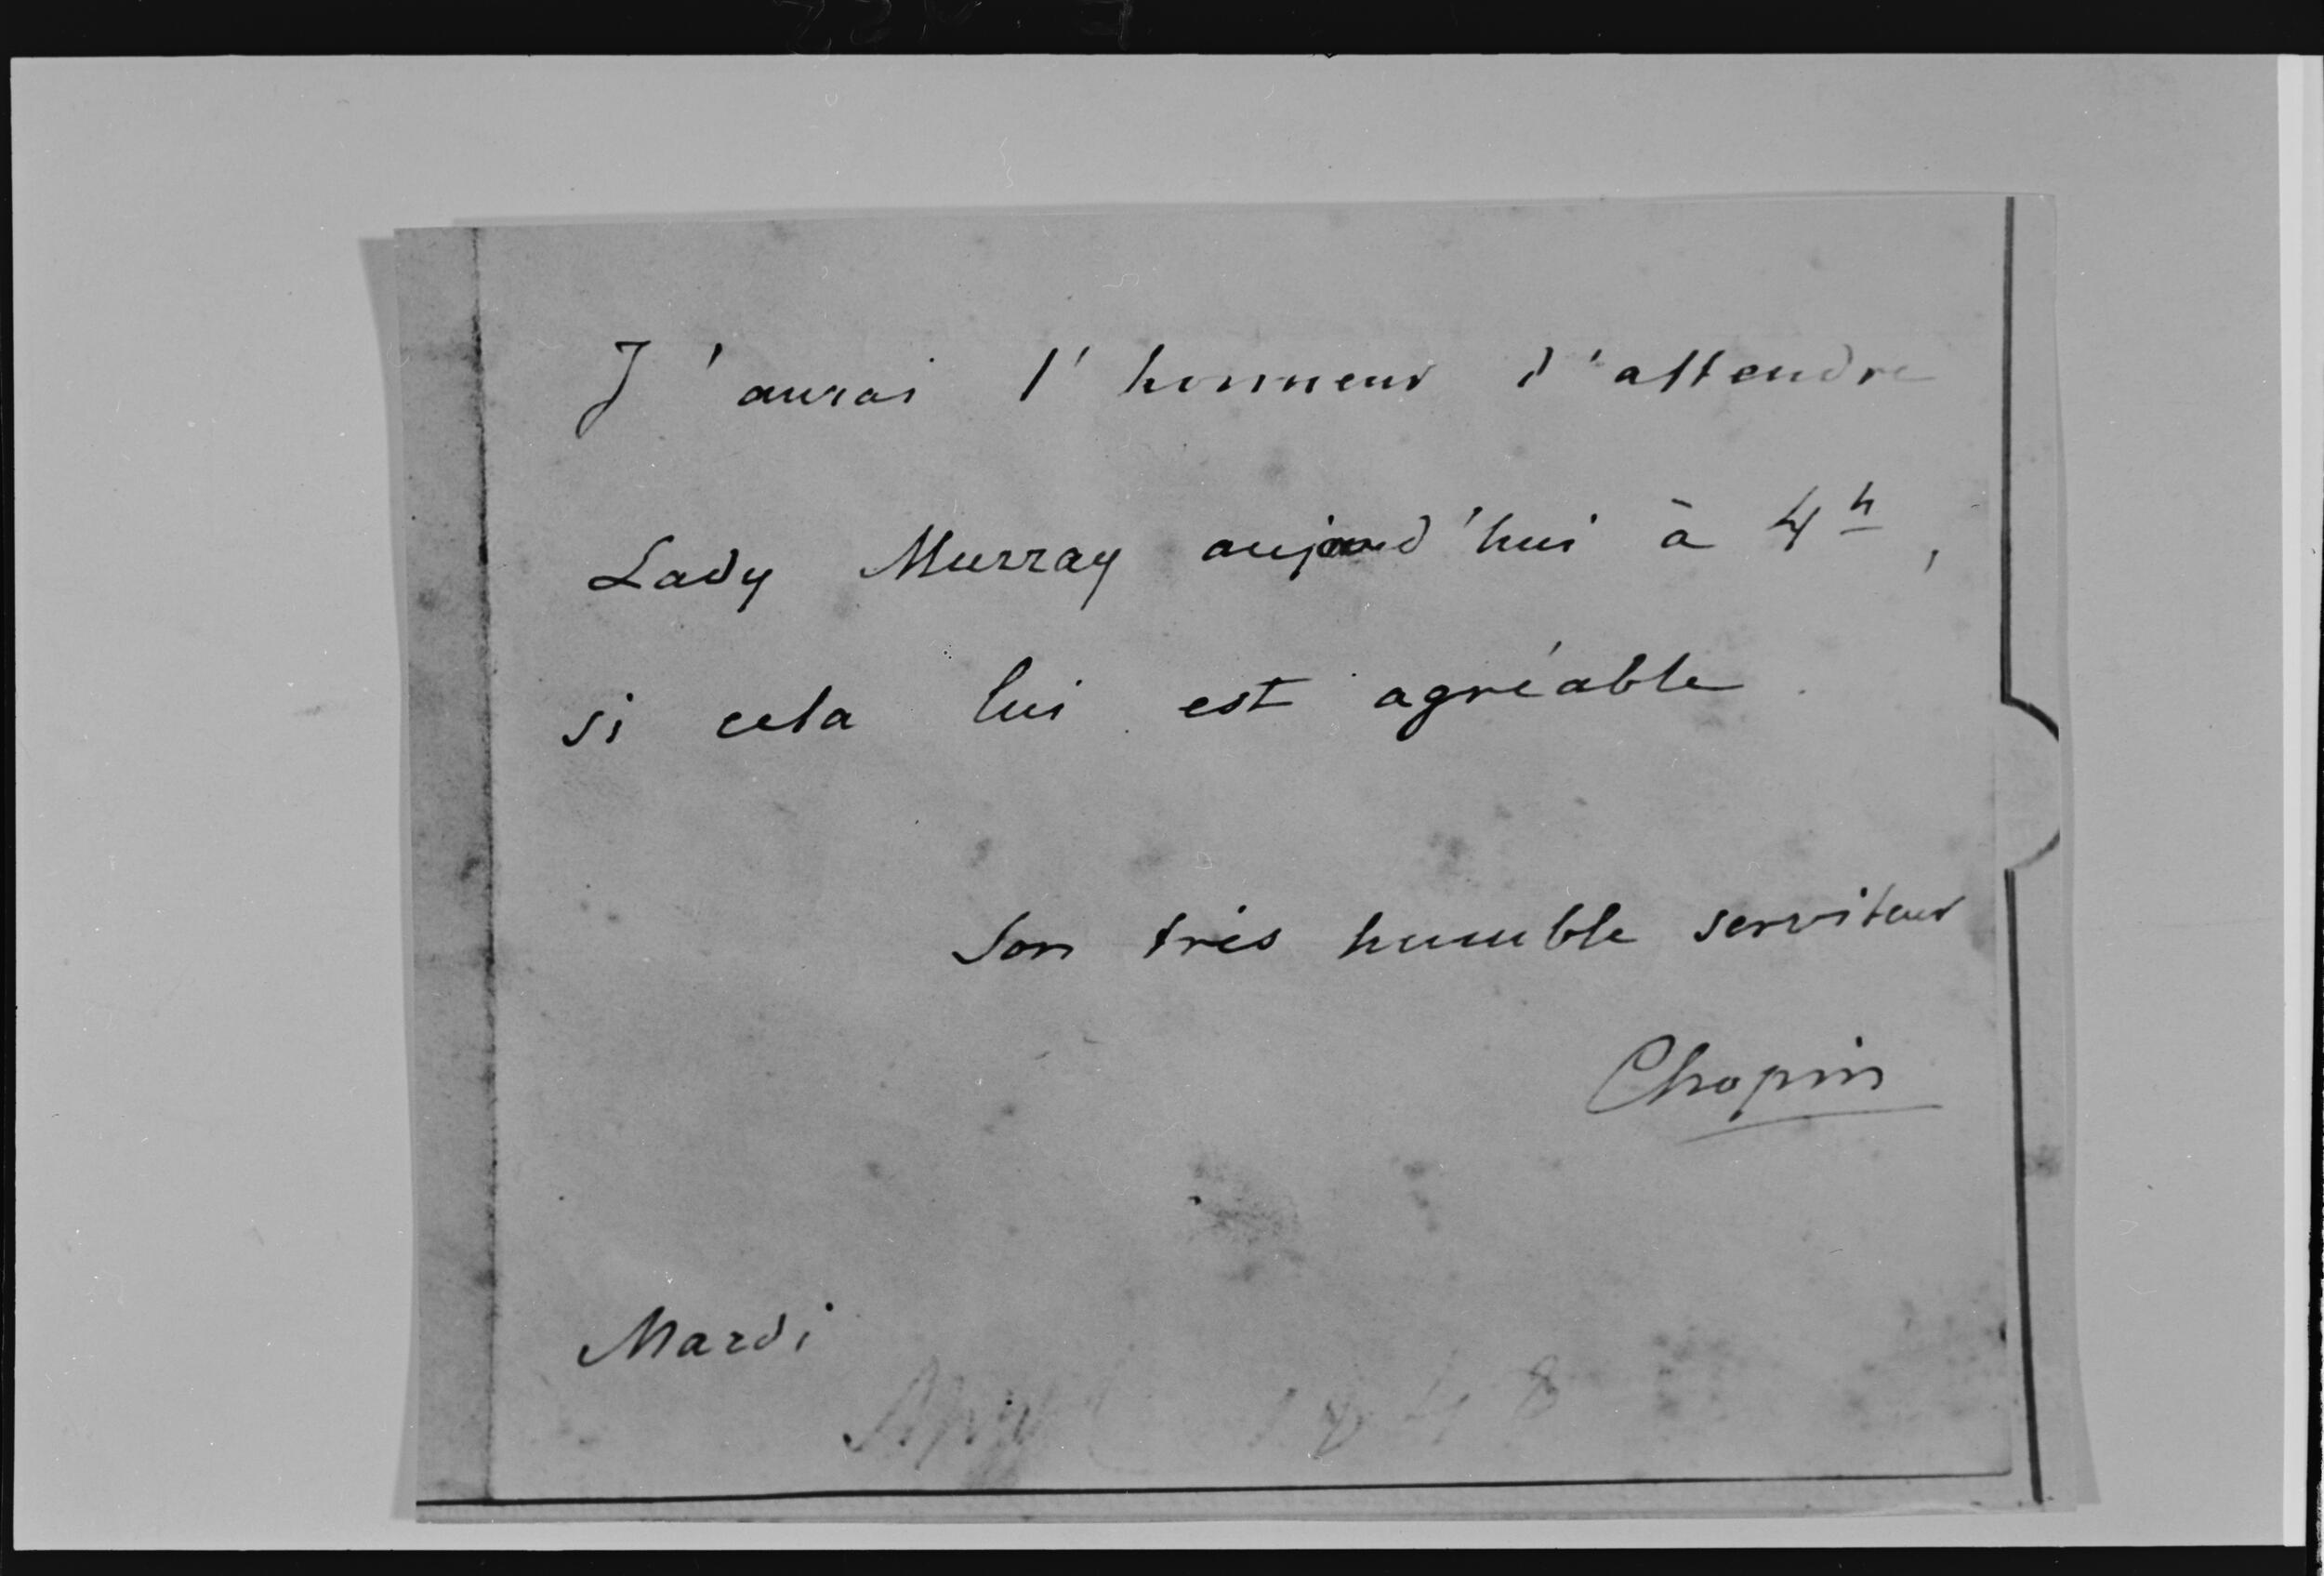 J'aurai l'honneur d'attendre
Lady Murray aujourd'hui à 4h,
si cela lui est agréable.
Son très humble serviteur
Chopin
Mardi
1848